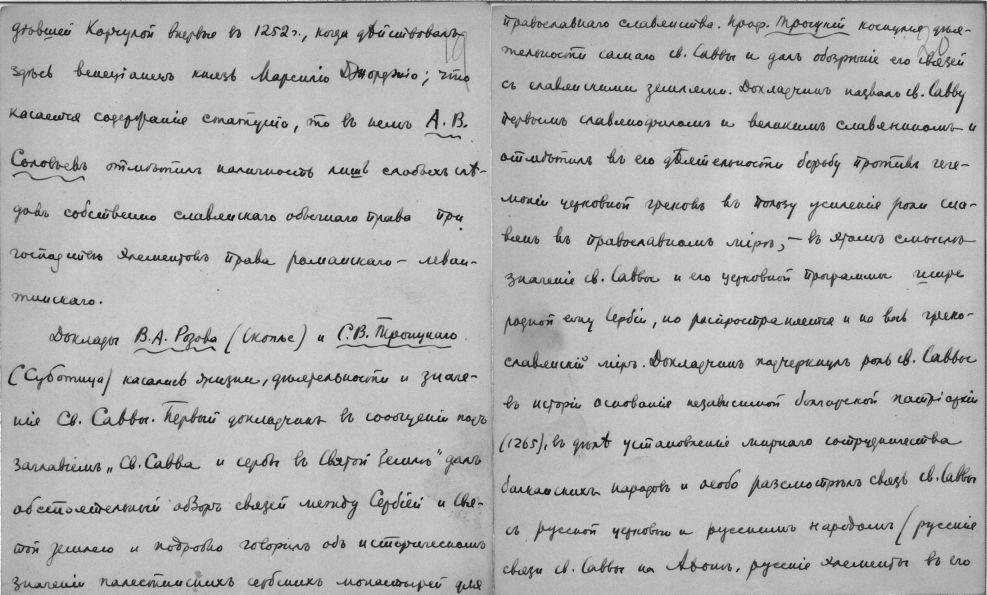 дѣвшей Карчулой впервые въ 1252 г., когда дѣйствовалъ
здѣсь венецiанецъ князь Марсилiо Джорджiо; что
касается содержанiе статута, то въ немъ А. В.
Соловьевъ отмѣтилъ наличность лишь слабыхъ слѣ-
довъ собственно славянскаго обычнаго права при
господствѣ элементовъ права романскаго – леван-
тинскаго.
Доклады В.А. Розова (Скопье) и С.В. Троицкаго
(Суботица) касались жизни, дѣятельности и значе-
нiе Св. Саввы. Первый докладчикъ въ сообщенiи подъ
заглавiемъ „Св. Савва и сербы въ Святой Землѣ" далъ
обстоятельный обзоръ связей между Сербiей и Свя-
той Землею и подробно говорилъ объ историческомъ
значенiи палестинскихъ сербскихъ монастырей для
православнаго славянства. Проф. Троицкiй коснулся дѣя-
тельности самаго св. Саввы и далъ обозрѣнiе его связей
съ славянскими землями. Докладчикъ назвалъ св. Савву
первымъ славянофиломъ и великимъ славяниномъ и
отмѣтилъ въ его дѣятельности борьбу противъ геге-
монiи церковной грековъ въ пользу усиленiе роли сла-
вянъ въ православномъ мiрѣ, – въ этомъ смыслѣ
значенiе св. Саввы и его церковной программы шире
родной ему Сербiи, но распространяется и на весь греко-
славянскiй мiръ. Докладчикъ подчеркнулъ роль св. Саввы
въ исторiи основанiе независимой болгарской патрiархiи
(1265), въ дѣлѣ установленiе мирнаго сотрудничества
балканскихъ народовъ и особо разсмотрѣлъ связь св. Саввы
съ русской церковью и русскимъ народомъ (русскiе
связи св. Саввы на Афонѣ, русскiе элементы въ его